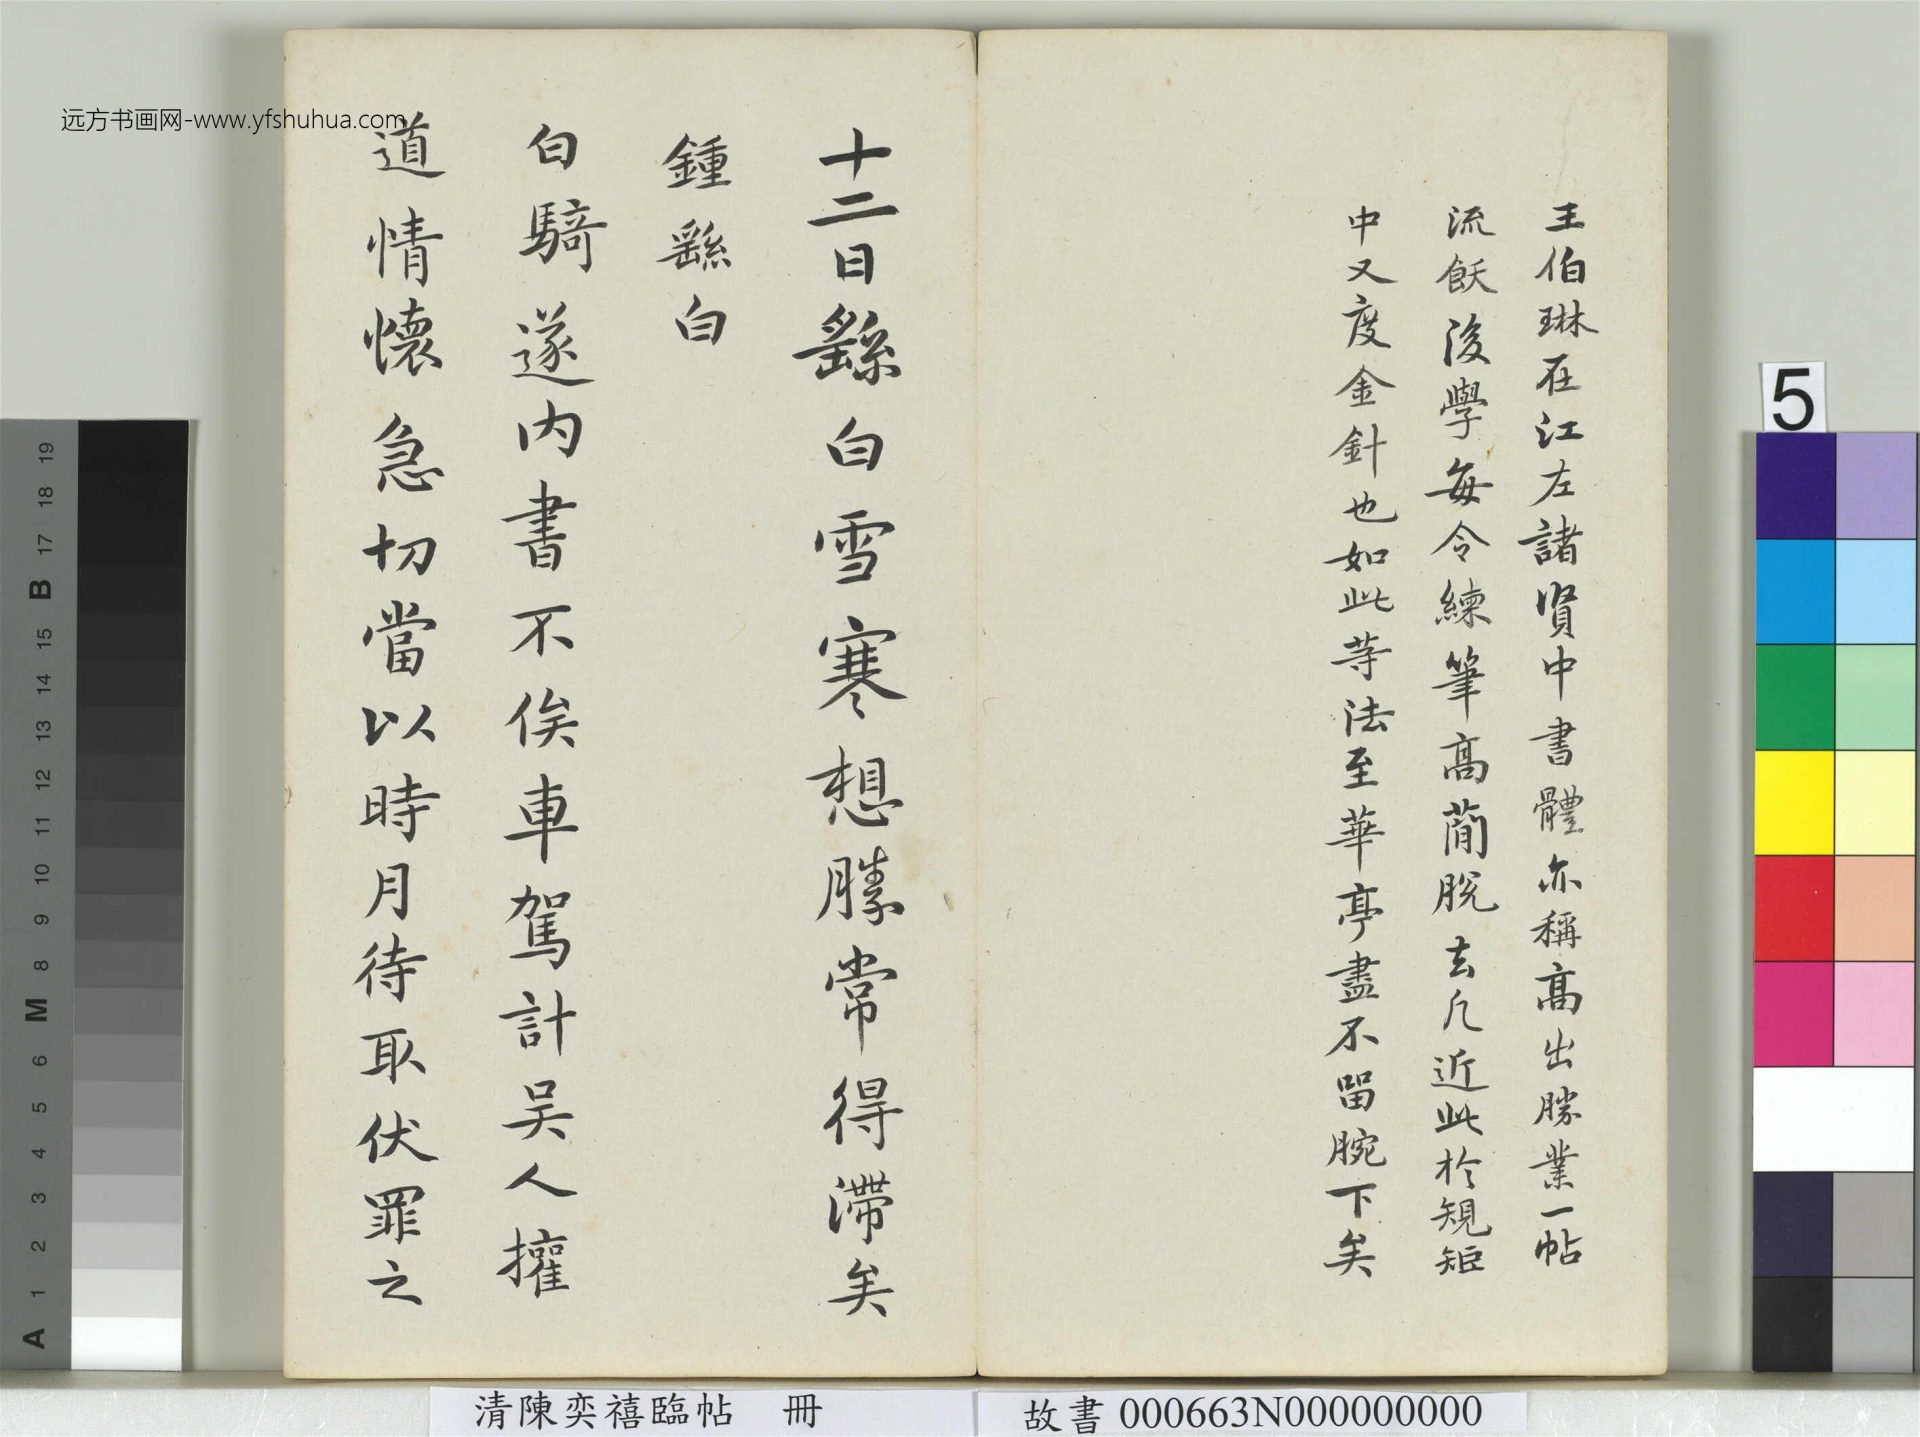 王伯琳在江左諸賢中書體亦稱高出勝業一帖
流飫後學每令練筆高蕳脫去凡近此於規矩
中又度金針也如此等法至華亭盡不留腕下矣
十二日繇白雪寒想勝常得滯矣
鍾繇白
白騎遂內書不俟車駕計吴人擁
道情懷急切當以時月待取伏罪之
远方书画网-www.yfshuhua.com
清陳奕禧臨帖 冊
故書 000663N000000000
5
A 1 2 3 4 5 6 M 8 9 10 11 12 13 14 15 B 17 18 19